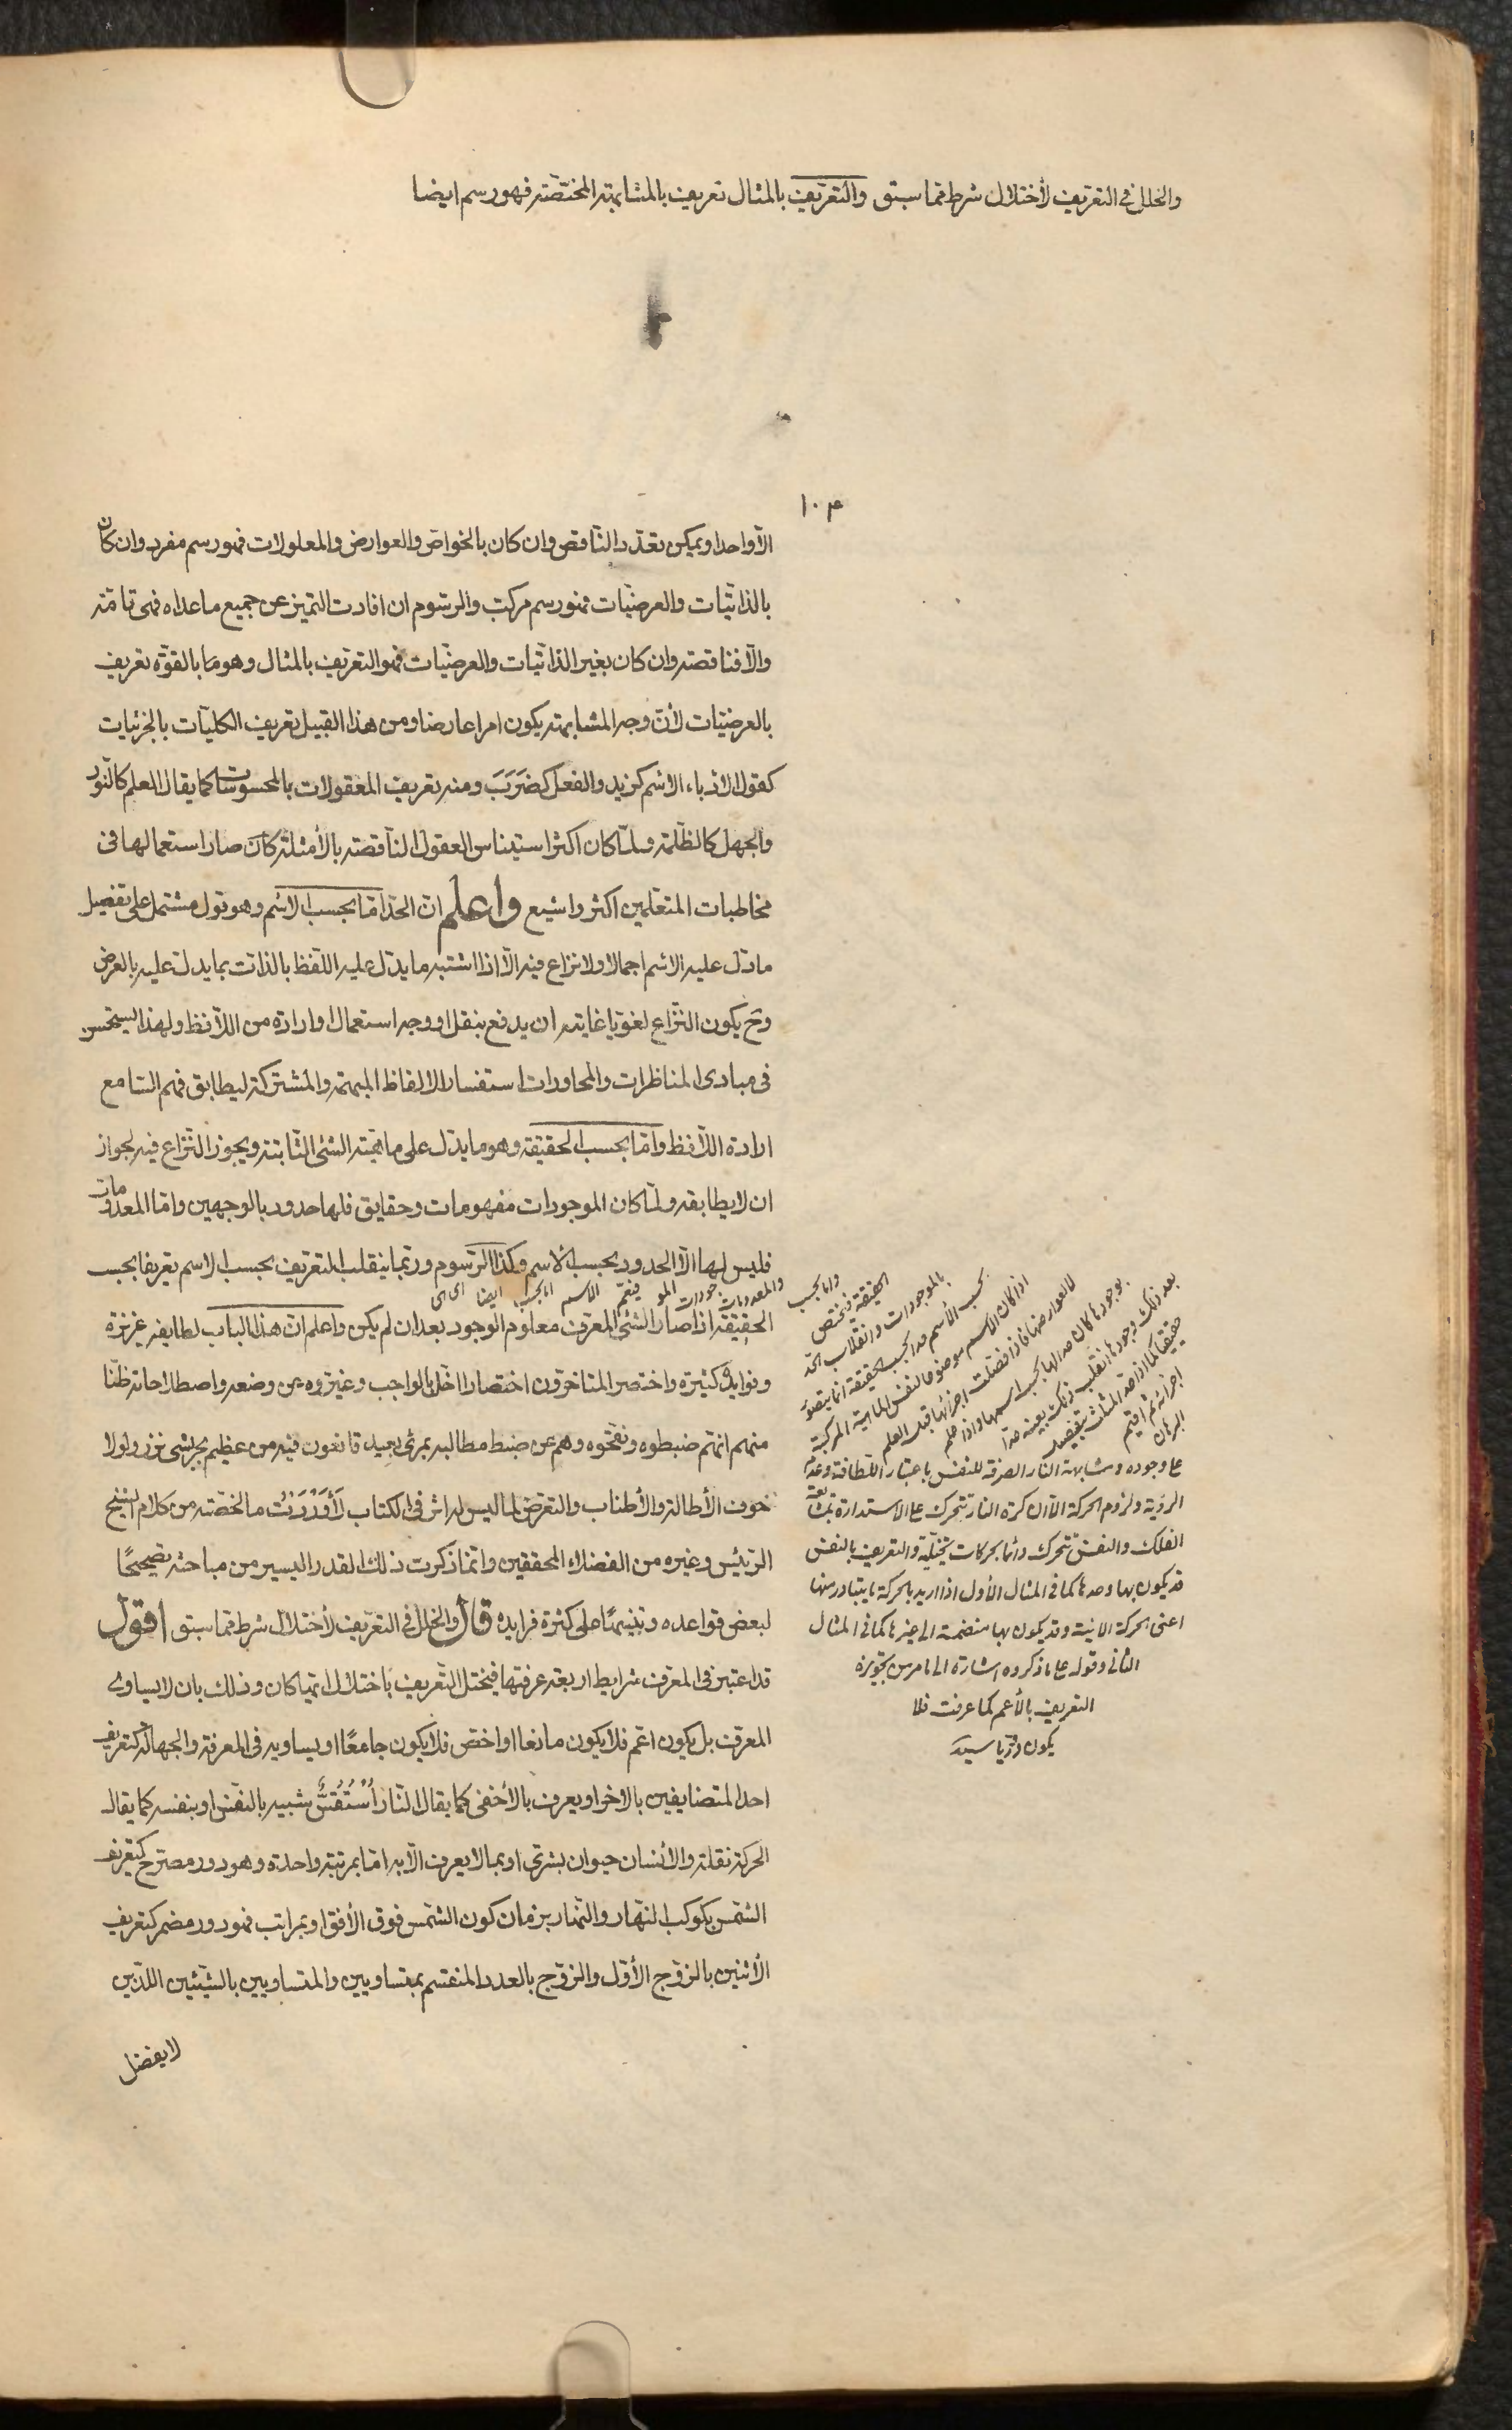 والخلل فى التعريف لأختلال شرط مما سبق والتعريف بالمثال تعريف بالمشابهة المختصّة فهو رسم ايضا
١٠٣
الّا واحدا ويمكن تعدّد الناقص وان كان بالخواصّ والعوارض والمعلولات فهو رسم مفرد وان كان
بالذاتيّات والعرضيّات فهو رسم مركب والرسوم ان افادت التميز عن جميع ماعداه فهى تامّة
والّا فناقصة وان كان بغير الذاتيّات والعرضيّات فهو التعريف بالمثال وهو ما بالقوّة تعريف
بالعرضيّات لأنّ وجه المشابهة يكون امرا عارضا ومن هذا القبيل تعريف الكليّات بالجزئيات
كقول الادباء الاسم كزيد والفعل كضَرَبَ ومنه تعريف المعقولات بالمحسوسات كما يقال العلم كالنّور
والجهل كالظّلمة ولمّا كان اكثر استيناس العقول الناقصة بالأمثلة كان صار استعمالها فى
مخاطبات المتعلمين اكثر واشيع واعلم انّ الحدّ امّا بحسب الاسم وهو قول مشتمل على تفصيل
ما دلّ عليه الاسم اجمالا ولا نزاع فيه الّا اذا اشتبه ما يدلّ عليه اللّفظ بالذات بما يدلّ عليه بالعرض
وح يكون النّزاع لغويّا غايته ان يدفع بنقل او وجه استعمال او ارادة من اللّافظ ولهذا يستحسن
فى مبادى المناظرات والمحاورات استفسار الالفاظ المبهمة والمشتركة ليطابق فهم السّامع
ارادة اللّافظ وامّا بحسب الحقيقة وهو ما يدلّ على ماهيّة الشئ الثّابتة ويجوز النّزاع فيه لجواز
ان لا يطابقه ولمّا كان الموجودات مفهومات وحقايق فلها حدود بالوجهين وامّا المعدومات
فليس لها الّا الحدود بحسب الاسم وكذا الرّسوم وربّما ينقلب التعريف بحسب الاسم تعريفا بحسب
الحقيقة اذا صار الشئ المعرّف معلوم الوجود بعد ان لم يكن واعلم انّ هذا الباب لطايفه غزيزة
وفوايده كثيرة واختصر المتاخرّون اختصارا اخلّ بالواجب وغيّروه عن وضعه واصطلاحاته ظنّا
منهم انّهم ضبطوه ونقّحوه وهم عن ضبط مطالبه بمرمى بعيد قانعون فيه من عظيم بحر بشئ نزر ولولا
خوف الأطالة والأطناب والتعرّض لما ليس له اثر فى الكتاب لَأَوْرَدْتُ ما لخّصته من كلام الشيخ
الرّئيس وغيره من الفضلاء المحققين وانّما ذكرت ذلك القدر اليسير من مباحثه تصحيحًا
لبعض قواعده وتنبيهًا على كثرة فرايده قال والخلل فى التعريف لأختلال شرط مما سبق اقول
قد اعتبر فى المعرّف شرايط اربعة عرفتها فيختل التّعريف باختلال ايّها كان وذلك بان لا يساوى
المعرّف بل يكون اعّم فلا يكون مانعا او اخصّ فلا يكون جامعًا او يساويه فى المعرفة والجهالة كتعريف
احد المتضايفين بالاخر او يعرف بالأخفى كما يقال النّار أُسْتُقُسٌّ شبيه بالنفس او بنفسه كما يقال
الحركة نقلة والأنسان حيوان بشرىّ او بما لا يعرف الّا به امّا بمرتبة واحدة وهو دور مصرّح كتعريف
الشمس بكوكب النّهار والنّهار بزمان كون الشّمس فوق الأفق او بمراتب فهو دور مضمر كتعريف
الأثنين بالزّوج الأوّل والزّوج بالعدد المنقسم بمتساويين والمتساويين بالشيئين اللّذين
لا يفضل
والمعدومات
الموجودات فيعّم الاسم ايضا
وامّا بحسب
الحقيقة فيختص
بالموجودات وانقلاب الحدّ
بحسب الأسم حدا بحسب الحقيقة انما يتصوّر
اذا كان الاسم موضوعا لنفس الماهية المركبة
لا لعوارضها فاذا فصّلت اجزائها قبل العلم
بوجودها كان حدا لها بحسب اسمها واذا علم
بعد ذلك وجودها انقلب ذلك بعينه حدّا
حقيقيّا كما اذا حدّ المثلث بتفصيل
اجزائه ثم اقيم
البرهان
على وجوده ومشابهة النّار الصرفة للنفس باعتبار اللّطافة وعدم
الرؤية ولزوم الحركة الّا ان كرة النار تتحرك على الاستدارة بمتابعة
الفلك والنفس تتحرك دائما بحركات تخيّلية والتعريف بالنفس
قد يكون بها وحدها كما فى المثال الأول اذا اريد بالحركة ما يتبادر منها
اعنى الحركة الاينية وقد يكون بها منضمة الى غيرها كما فى المثال
الثانى وقوله على ما ذكروه اشارة الى ما مرّ من تجويزه
التعريف بالأعم كما عرفت فلا
يكون سيد